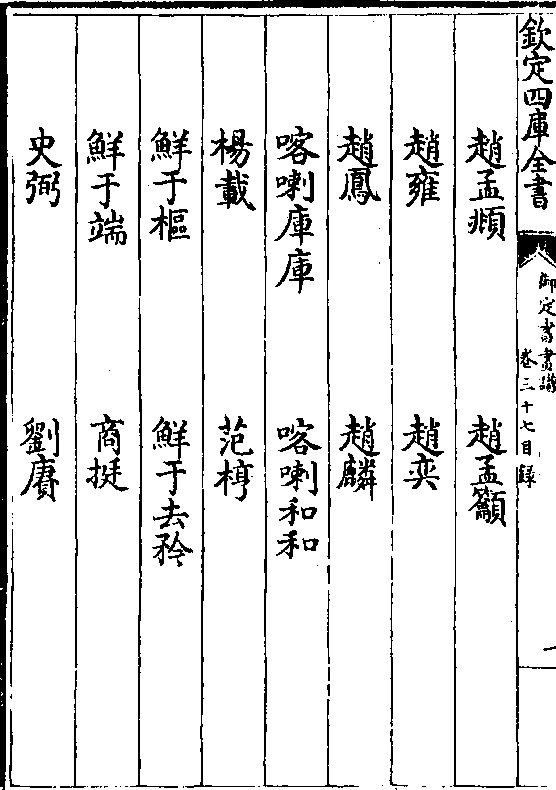 欽定四庫全書
御定書畫譜
卷三十七目録
一
趙孟頫　趙孟籲
趙雍　趙奕
趙鳳　趙麟
喀喇庫庫　喀喇和和
楊載　范梈
鮮于樞　鮮于去矜
鮮于端　商挺
史弼　劉賡